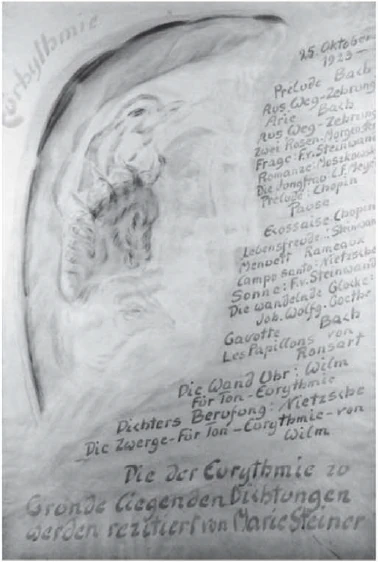 Eurhythmie
25. Oktober
1923 —
Prelude Bach
Aus Weg-Zehrung
Arie Bach
Aus Weg-Zehrung
Zwei Rosen: Morgenstern
Frage: F.v. Steinwand
Romanze: Moszkowski
Die Jungfrau: C.F. Meyer
Prelude: Chopin
Pause
Ecossaise: Chopin
Lebensfreude: Steinwand
Menuett Rameaux
Campo santo: Nietzsche
Sonne: F.v. Steinwand
Die wandelnde Glocke:
Joh. Wolfg. Goethe
Gavotte Bach
Les Papillons von
Ronsart
Die Wand Uhr: Wilm
Für Ton-Eurythmie
Dichters Berufung: Nietzsche
Die Zwerge-Für Ton-Eurythmie-von
Wilm
Die der Eurythmie zu
Grunde liegenden Dichtungen
werden rezitiert von Marie Steiner